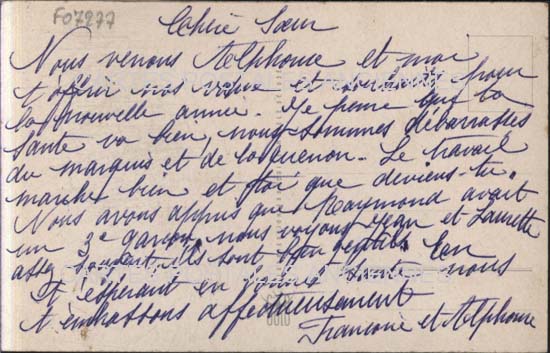 F07277
Chère Sœur
Nous venons Alphonse et moi
t'offrir nos vœux et souhaits pour
la nouvelle année. Je pense que ta
santé va bien, nous sommes débarrassés
du marquis et de la guenon. Le travail
marche bien et toi que deviens-tu.
Nous avons appris que Raymond avait
un 3e garçon, nous voyons Jean et Laurette
assez souvent ils sont bien gentils. En
t'espérant en bonne santé nous
t'embrassons affectueusement
Francine et Alphonse